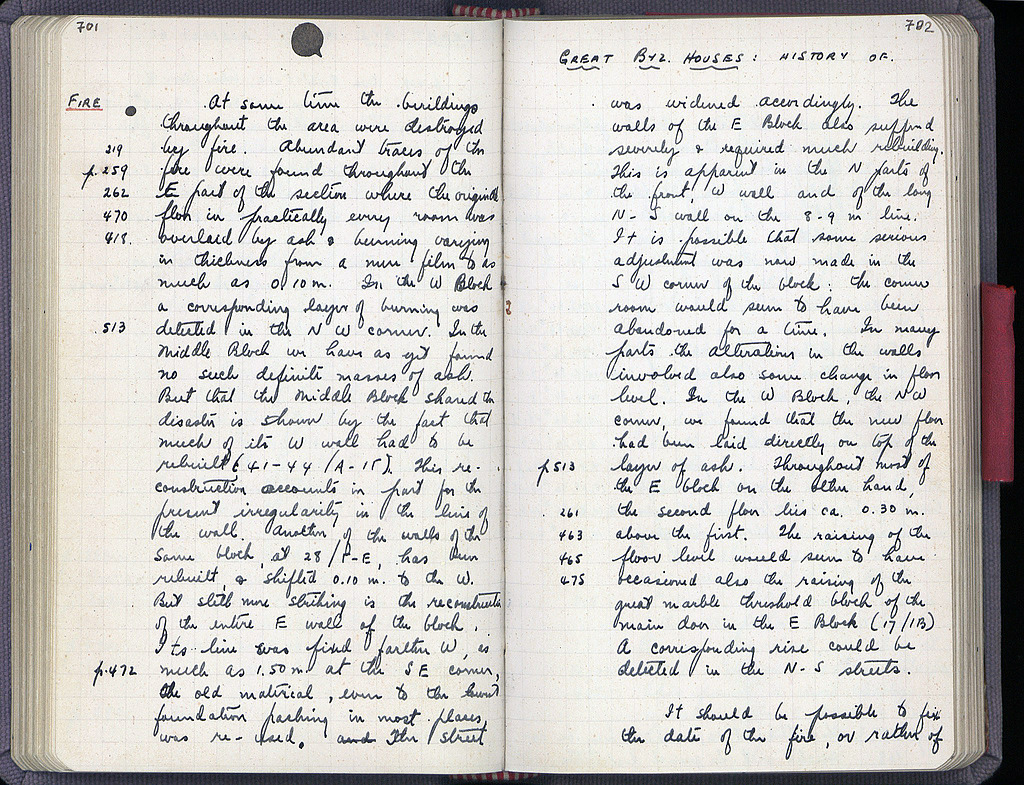 701
FIRE
At some time the buildings
throughout the area were destroyed
219 by fire. Abundant traces of the
p.259 fire were found throughout the
262 E part of the section where the original
470 floor in practically every room was
418. overlaid by ash & burning varying
in thickness from a mere film to as
much as 0.10 m. In the W Block
a corresponding layer of burning was
513 detected in the N W corner. In the
Middle Block we have as yet found
no such definite masses of ash.
But that the Middle Block shared the
disaster is shown by the fact that
much of its W wall had to be
rebuilt (41-44 / A-15). This re-
construction accounts in part for the
present irregularity in the line of
the wall. Another of the walls of the
same block, at 28/ -E, has been
rebuilt, & shifted 0.10 m. to the W.
But still more striking is the reconstruction
of the entire E wall of the block.
Its line was fixed farther W, as
p.472 much as 1.50 m. at the SE corner,
the old material, even to the lowest
foundation packing in most places,
was re-used. and The street
702
GREAT BYZ. HOUSES: HISTORY OF.
was widened accordingly. The
walls of the E Block also suffered
severely & required much rebuilding.
This is apparent in the N parts of
the front, W wall and of the long
N-S wall on the 8-9 m line.
It is possible that some serious
adjustment was now made in the
S W corner of the block: the corner
room would seem to have been
abandoned for a time. In many
parts the alterations in the walls
involved also some change in floor
level. In the W Block, the NW
corner, we found that the new floor
had been laid directly on top of the
p513 layer of ash. Throughout most of
the E block on the other hand,
261 the second floor lies ca. 0.30 m.
463 above the first. The raising of the
465 floor level would seem to have
475 occasioned also the raising of the
great marble threshold block of the
main door in the E Block (17/1B)
A corresponding rise could be
detected in the N-S streets.
It should be possible to fix
the date of the fire, or rather of